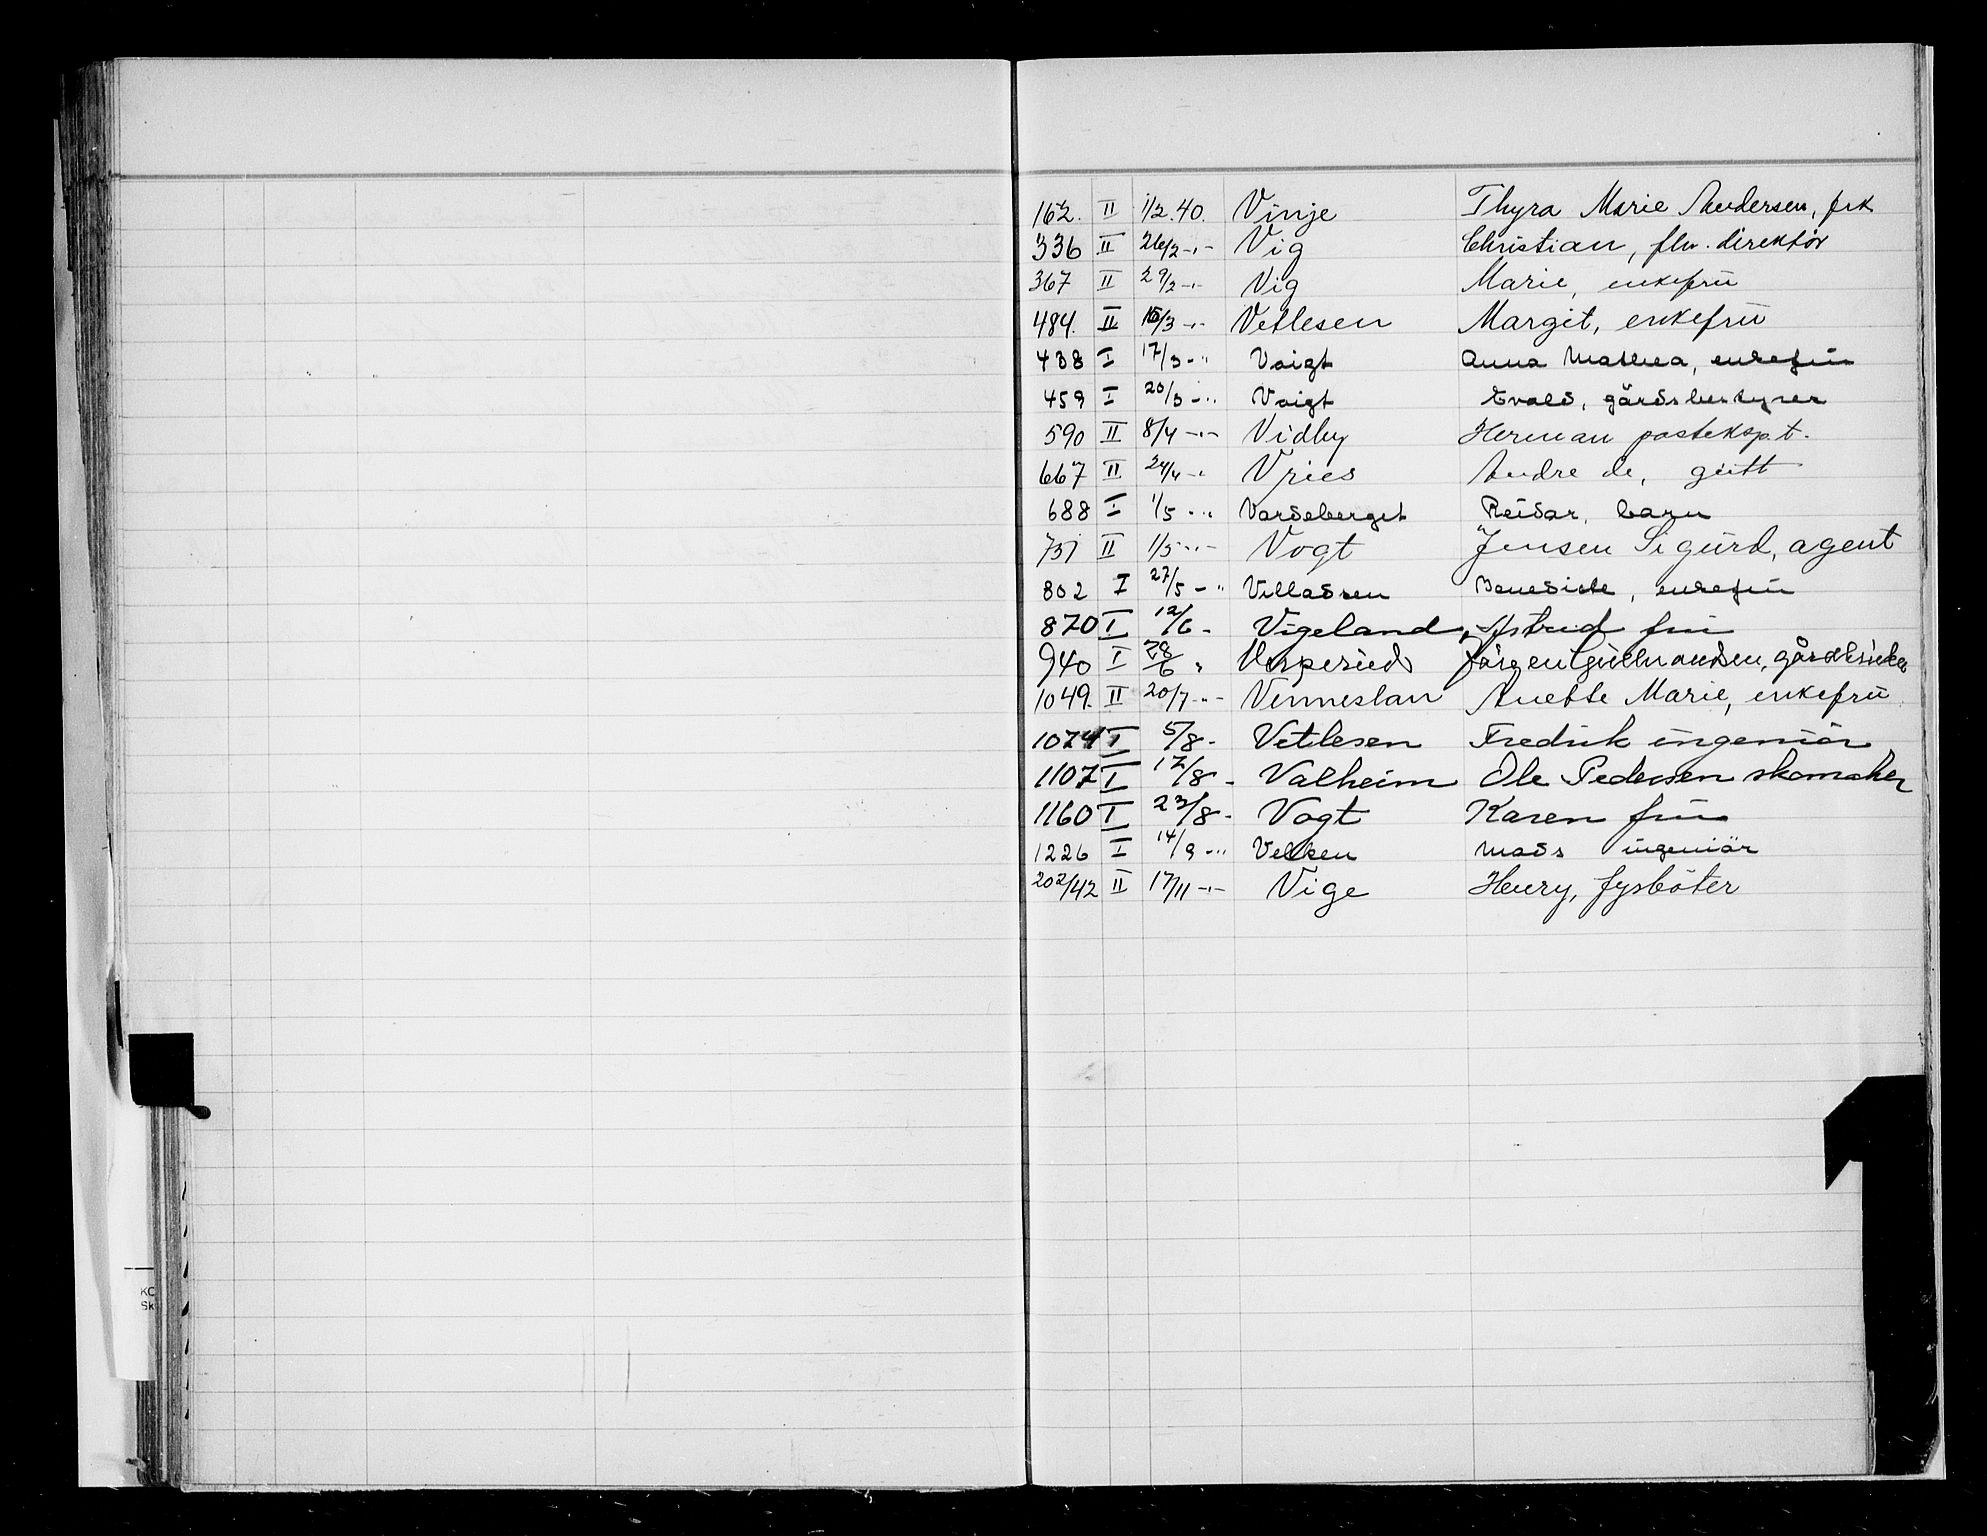 162. II 1/2.40. Vinje Thyra Marie Andersen, frk
336 II 26/2 -"- Vig Christian, fhv. direktör
367 II 29/2 -"- Vig Marie, enkefru
484. II 16/3 -"- Vetlesen Margit, enkefru
438 I 17/3 -"- Voigt Anna Mathea, enkefru
459 I 20/3 -"- Voigt Evald, gårdsbestyrer
590 II 8/4 -"- Vidby Herman posteksp.t.
667 II 24/4 -"- Vries Andre de, gutt
688 I 1/5 -"- Vardeberget Reidar, barn
731 II 1/5 -"- Vogt Jensen Sigurd, agent
802 I 27/5 -"- Villadsen Benedicte, enkefru
870 I 12/6 - Vigeland, Astrid fru
940 I 28/6 " Jörgen Gulbrandsen, gårdbruker
1049. II 20/7 -"- Venneslan Anette Marie, enkefru
1074 I 5/8 - Vetlesen Fredrik ingeniör
1107 I 12/8 - Valheim Ole Pedersen skomaker
1160 I 23/8 - Vogt Karen fru
1226 I 14/9 -"- Velken Mads ingeniör
202/42 II 17/11 -"- Vige Henry, fysböter
KO
Sk